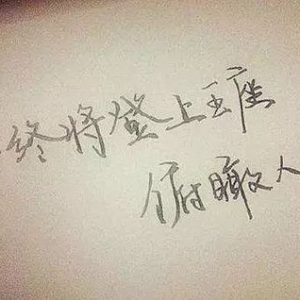 终将登上王座
俯瞰人